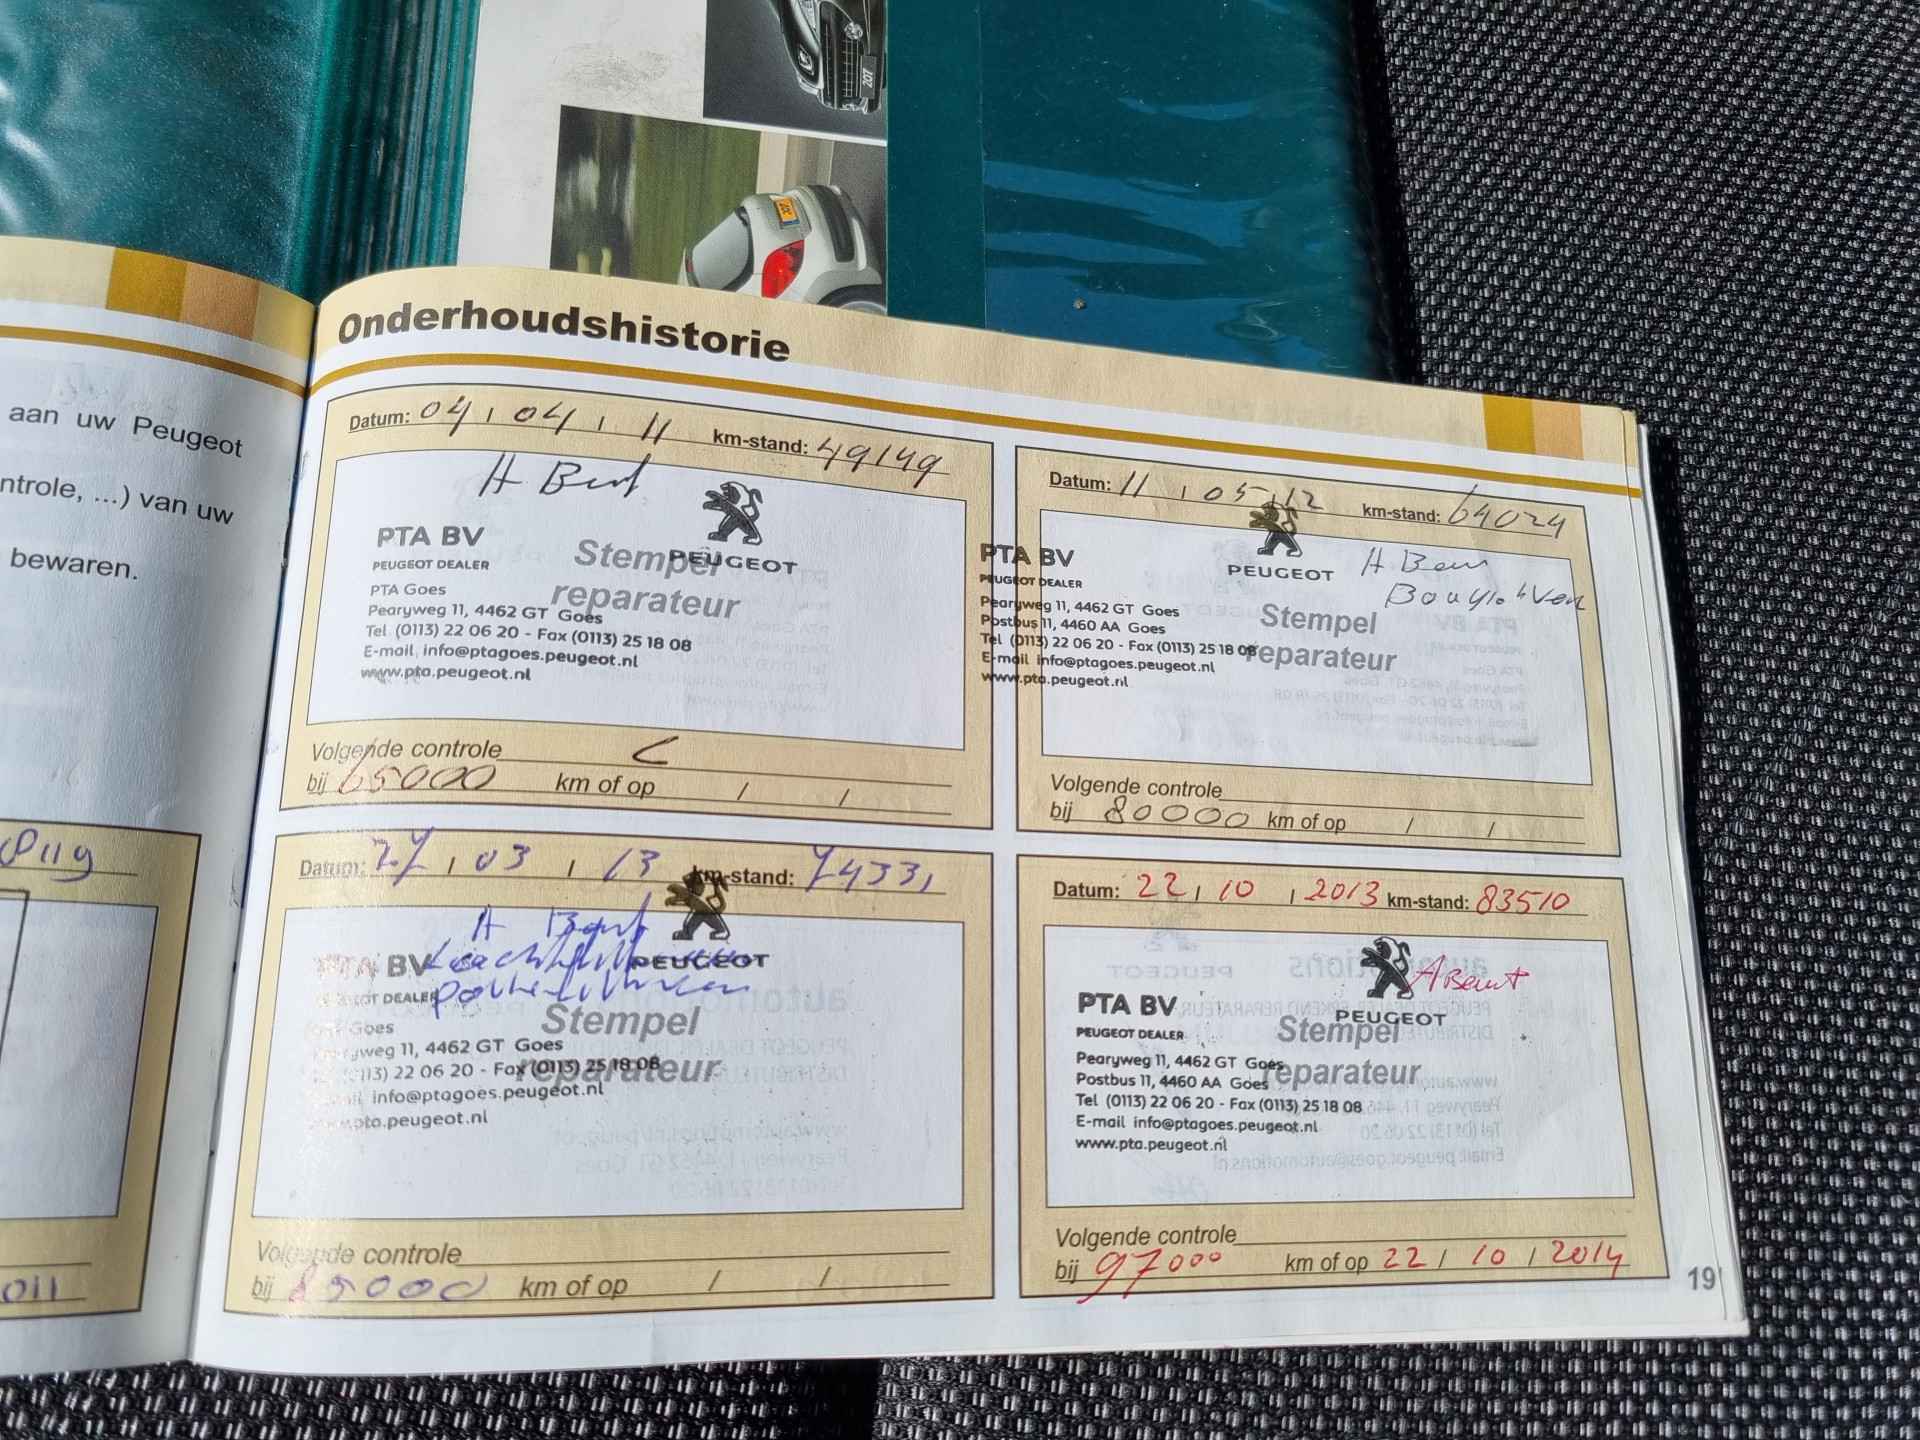 207
207
aan uw Peugeot
ntrole, ...) van uw
bewaren.
Onderhoudshistorie
Datum: 04 / 04 / 11 km-stand: 49149
A Beurt
PEUGEOT
PTA BV
PEUGEOT DEALER
Stempel
reparateur
PTA Goes
Pearyweg 11, 4462 GT Goes
Tel (0113) 22 06 20 - Fax (0113) 25 18 08
E-mail info@ptagoes.peugeot.nl
www.pta.peugeot.nl
Volgende controle C
bij 65000 km of op / /
Datum: 11 / 05 / 12 km-stand: 64024
PEUGEOT
A Beurt
PTA BV
PEUGEOT DEALER
Stempel
reparateur
Pearyweg 11, 4462 GT Goes
Postbus 11, 4460 AA Goes
Tel (0113) 22 06 20 - Fax (0113) 25 18 08
E-mail info@ptagoes.peugeot.nl
www.pta.peugeot.nl
Volgende controle
bij 80000 km of op / /
Datum: 27 / 03 / 13 km-stand: 74331
A Beurt
PEUGEOT
PTA BV
PEUGEOT DEALER
Stempel
reparateur
Goes
Pearyweg 11, 4462 GT Goes
(0113) 22 06 20 - Fax (0113) 25 18 08
info@ptagoes.peugeot.nl
pta.peugeot.nl
Volgende controle
bij 89000 km of op / /
Datum: 22 / 10 / 2013 km-stand: 83510
A Beurt
PEUGEOT
PTA BV
PEUGEOT DEALER
Stempel
reparateur
Pearyweg 11, 4462 GT Goes
Postbus 11, 4460 AA Goes
Tel (0113) 22 06 20 - Fax (0113) 25 18 08
E-mail info@ptagoes.peugeot.nl
www.pta.peugeot.nl
Volgende controle
bij 97000 km of op 22 / 10 / 2014
19